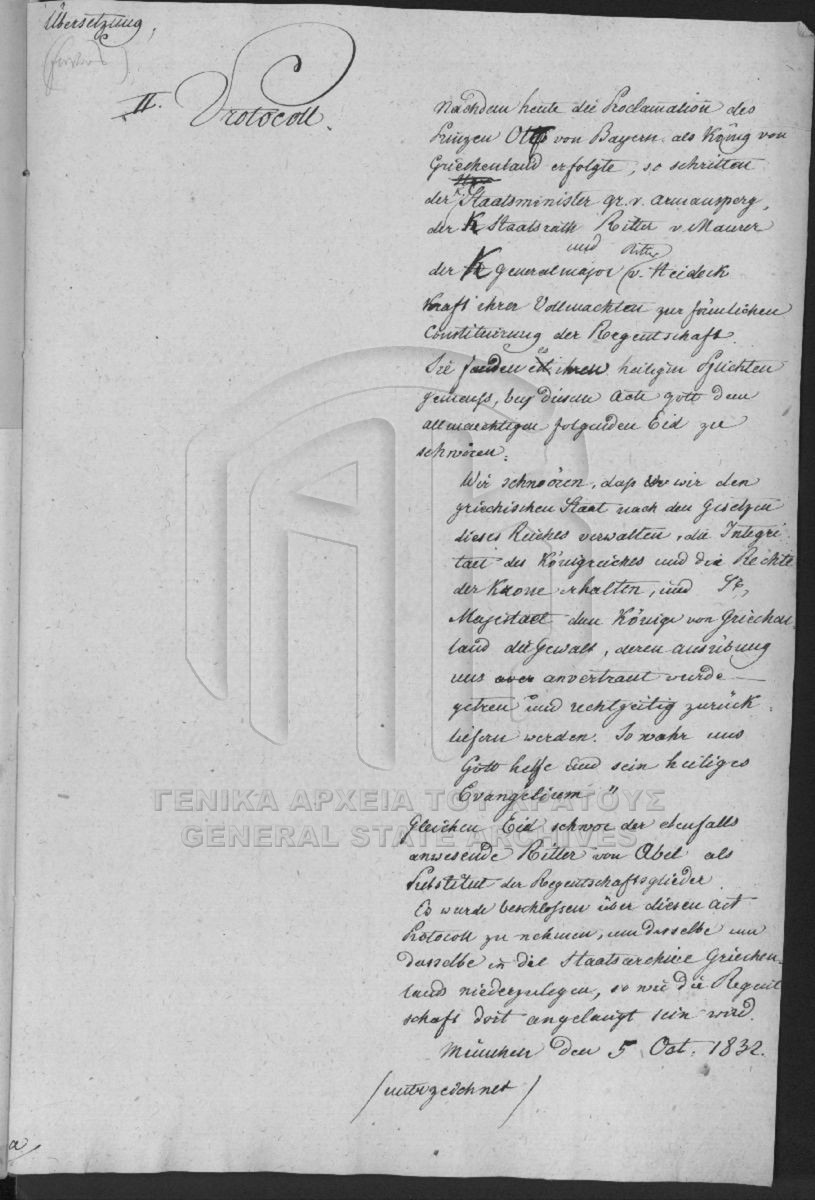 Übersetzung,
II. Protocoll.
Nachdem heute die Proclamation des
Prinzen Otto von Bayern als König von
Griechenland erfolgte, so schritten
der K. Staatsminister gr. v. Armansperg,
der K Staatsrath Ritter v. Maurer
und Ritter
der K generalmajor v. Heideck
Kraft ihrer Vollmachten zur förmlichen
Constituirung der Regentschaft.
Sie fanden es ihren heiligen Pflichten
gemaess, bey diesem Acte gott dem
allmaechtigen folgenden Eid zu
schwören:
Wir schwören, dass wir den
griechischen Staat nach den Gesetzen
dieses Reiches verwalten, die Integri
taet des Königreiches und die Rechte
der Krone erhalten, und Sr.
Majestaet dem Könige von Griechen
land die Gewalt, deren Ausübung
uns anvertraut wurde
getreu und rechtzeitig zurück
liefern werden. So wahr uns
Gott helfe und sein heiliges
Evangelium "
Gleichen Eid schwor der ebenfalls
anwesende Ritter von Abel als
Substitut der Regentschaftsglieder
Es wurde beschlossen über diesen Act
Protocoll zu nehmen, um dasselbe um
dasselbe in die Staatsarchive Griechen
lands niederzulegen, so wie die Regent
schaft dort angelangt sein wird.
München den 5 Oct. 1832.
/ unterzeichnet /
a
ΓΕΝΙΚΑ ΑΡΧΕΙΑ ΤΟΥ ΚΡΑΤΟΥΣ
GENERAL STATE ARCHIVES